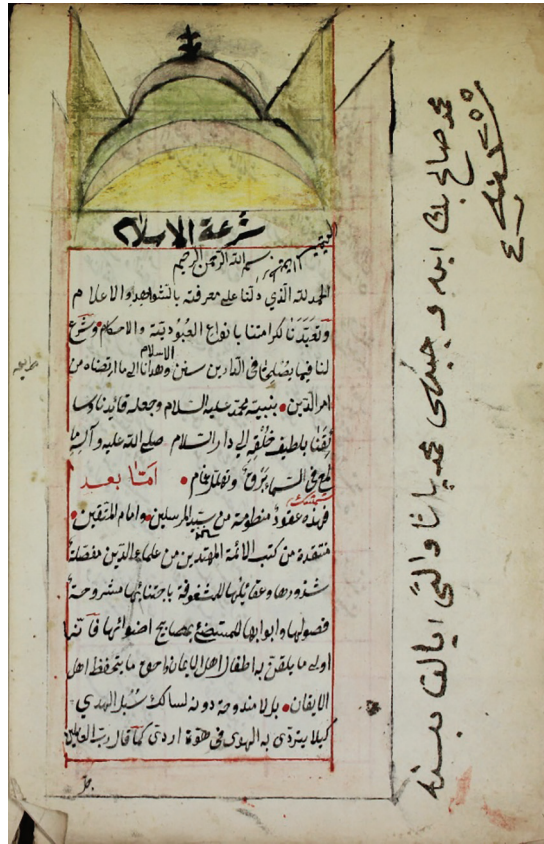 شرعة الاسلام
بسم الله الرحمن الرحيم
الحمد لله الذي دلنا على معرفته بالشواهد والاعلام
وتعبدنا كرامتنا بانواع العبودية والاحكام وشرع
لنا فيما يصلحنا في الدارين سنن الاسلام وهدانا الى ما ارتضاه من
امر الدين بنبيه محمد عليه السلام وجعله قائدنا وسا
ئقنا بلطيف خلقه الى دار السلام صلى الله عليه وآله ما
لمع في السماء بروق وتهلل غمام اما بعد
فهذه عقود منظومة من سيد المرسلين وامام المتقين
منتقدة من كتب الائمة المهتدين من علماء الدين مفصلة
شذورها وعقائلها للمشغوفة باجتنائها مشروحة
فصولها وابوابها للمستضئ بمصابيح اضوائها فانها
اولى ما يلقن به اطفال اهل الايمان واحق ما يتحفظ اهل
الايقان بل لا مندوحة دونه لسالك سبل الهدى
كيلا يتردى به الهوى في هوة الردى كما قال رب العالمين
محمد صالح بك ابنه و محمد پاشا والئ ايالت